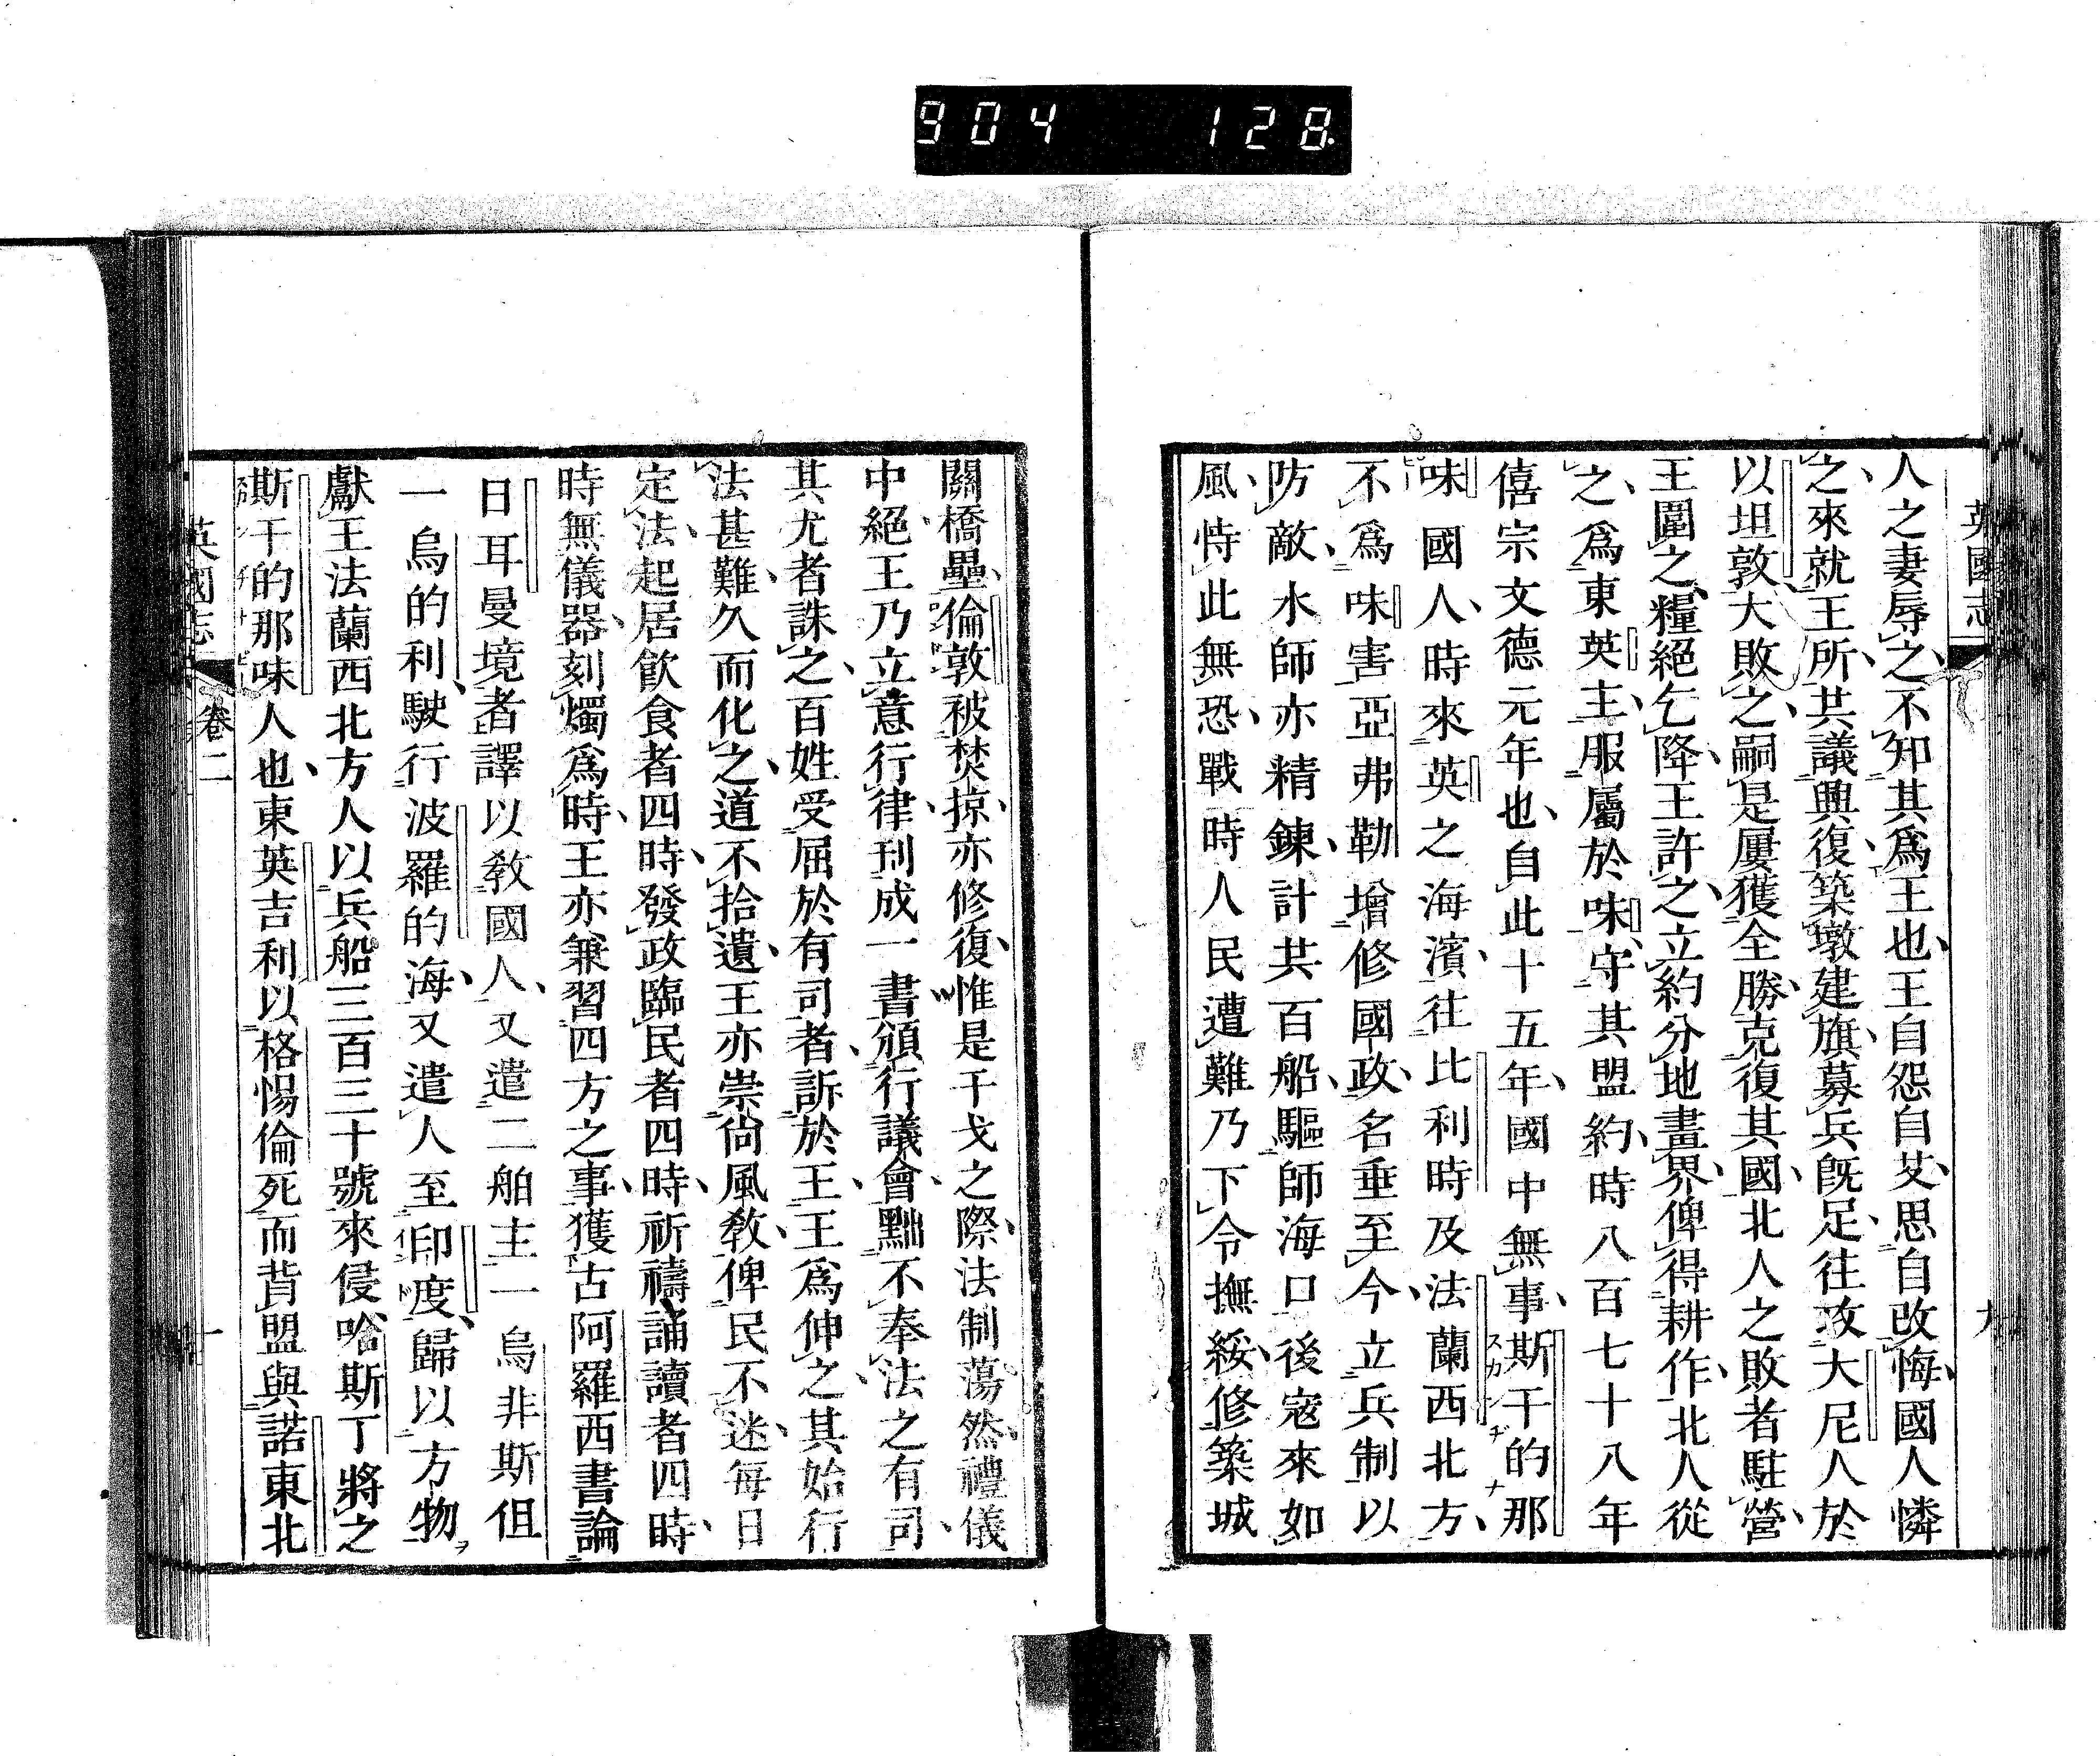 904 128
英國志
人之妻辱之不知其爲王也王自怨自艾思自改悔國人憐
之來就王所共議興復築墩建旗募兵既足往攻大尼人於
以坦敦大敗之嗣是屢獲全勝克復其國北人之敗者駐營
王圍之糧絕乞降王許之立約分地畫界俾得耕作北人從
之爲東英主服屬於味守其盟約時八百七十八年
僖宗文德元年也自此十五年國中無事斯干的那
味國人時來英之海濱往比利時及法蘭西北方
不爲味害亞弗勒增修國政名垂至今立兵制以
防敵水師亦精鍊計共百船驅師海口後寇來如
風恃此無恐戰時人民遭難乃下令撫綏修築城
關橋壘倫敦被焚掠亦修復惟是干戈之際法制蕩然禮儀
中絕王乃立意行律刊成一書頒行議會黜不奉法之有司
其尤者誅之百姓受屈於有司者訴於王王爲伸之其始行
法甚難久而化之道不拾遺王亦崇尚風教俾民不迷每日
定法起居飲食者四時發政臨民者四時祈禱誦讀者四時
時無儀器刻燭爲時王亦兼習四方之事獲古阿羅西書論
日耳曼境者譯以教國人又遣二舶主一烏非斯但
一烏的利駛行波羅的海又遣人至印度歸以方物
獻王法蘭西北方人以兵船三百三十號來侵哈斯丁將之
斯干的那味人也東英吉利以格惕倫死而背盟與諾東北
英國志
卷二